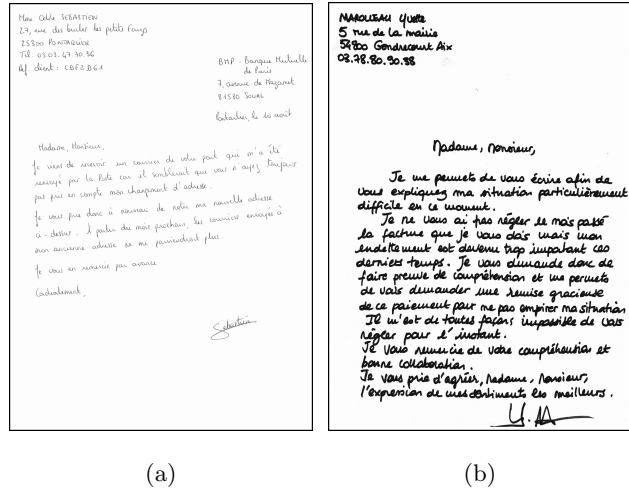 Mme Odile SEBASTIEN
27, rue des buttes les petits Fougs
25300 PONTARLIER
Tél. 03.03.47.70.36
Réf. client : CBFZDG1
BMP - Banque Mutuelle
de Paris
7, avenue de Mazamet
81580 SOUAL
Pontarlier, le 10 août
Madame, Monsieur,
Je viens de recevoir un courrier de votre part qui m'a été
renvoyé par la Poste car il semblerait que vous n'ayez toujours
pas pris en compte mon changement d'adresse.
Je vous prie donc à nouveau de noter ma nouvelle adresse
ci-dessus. À partir du mois prochain, les courriers envoyés à
mon ancienne adresse ne me parviendront plus.
Je vous en remercie par avance
Cordialement,
Sebastien
(a)
MAROLLEAU Yvette
5 rue de la mairie
54800 Gondrecourt Aix
03.78.80.90.88
Madame, Monsieur,
Je me permets de vous écrire afin de
vous expliquez ma situation particulièrement
difficile en ce moment.
Je ne vous ai pas régler le mois passé
la facture que je vous dois mais mon
endettement est devenu trop important ces
derniers temps. Je vous demande donc de
faire preuve de compréhension et me permets
de vous demander une remise gracieuse
de ce paiement pour ne pas empirer ma situation
Il m'est de toutes façons impossible de vous
régler pour l'instant.
Je vous remercie de votre compréhention et
bonne collaboration.
Je vous prie d'agréer, Madame, Monsieur,
l'expression de mes sentiments les meilleurs.
Y. M
(b)